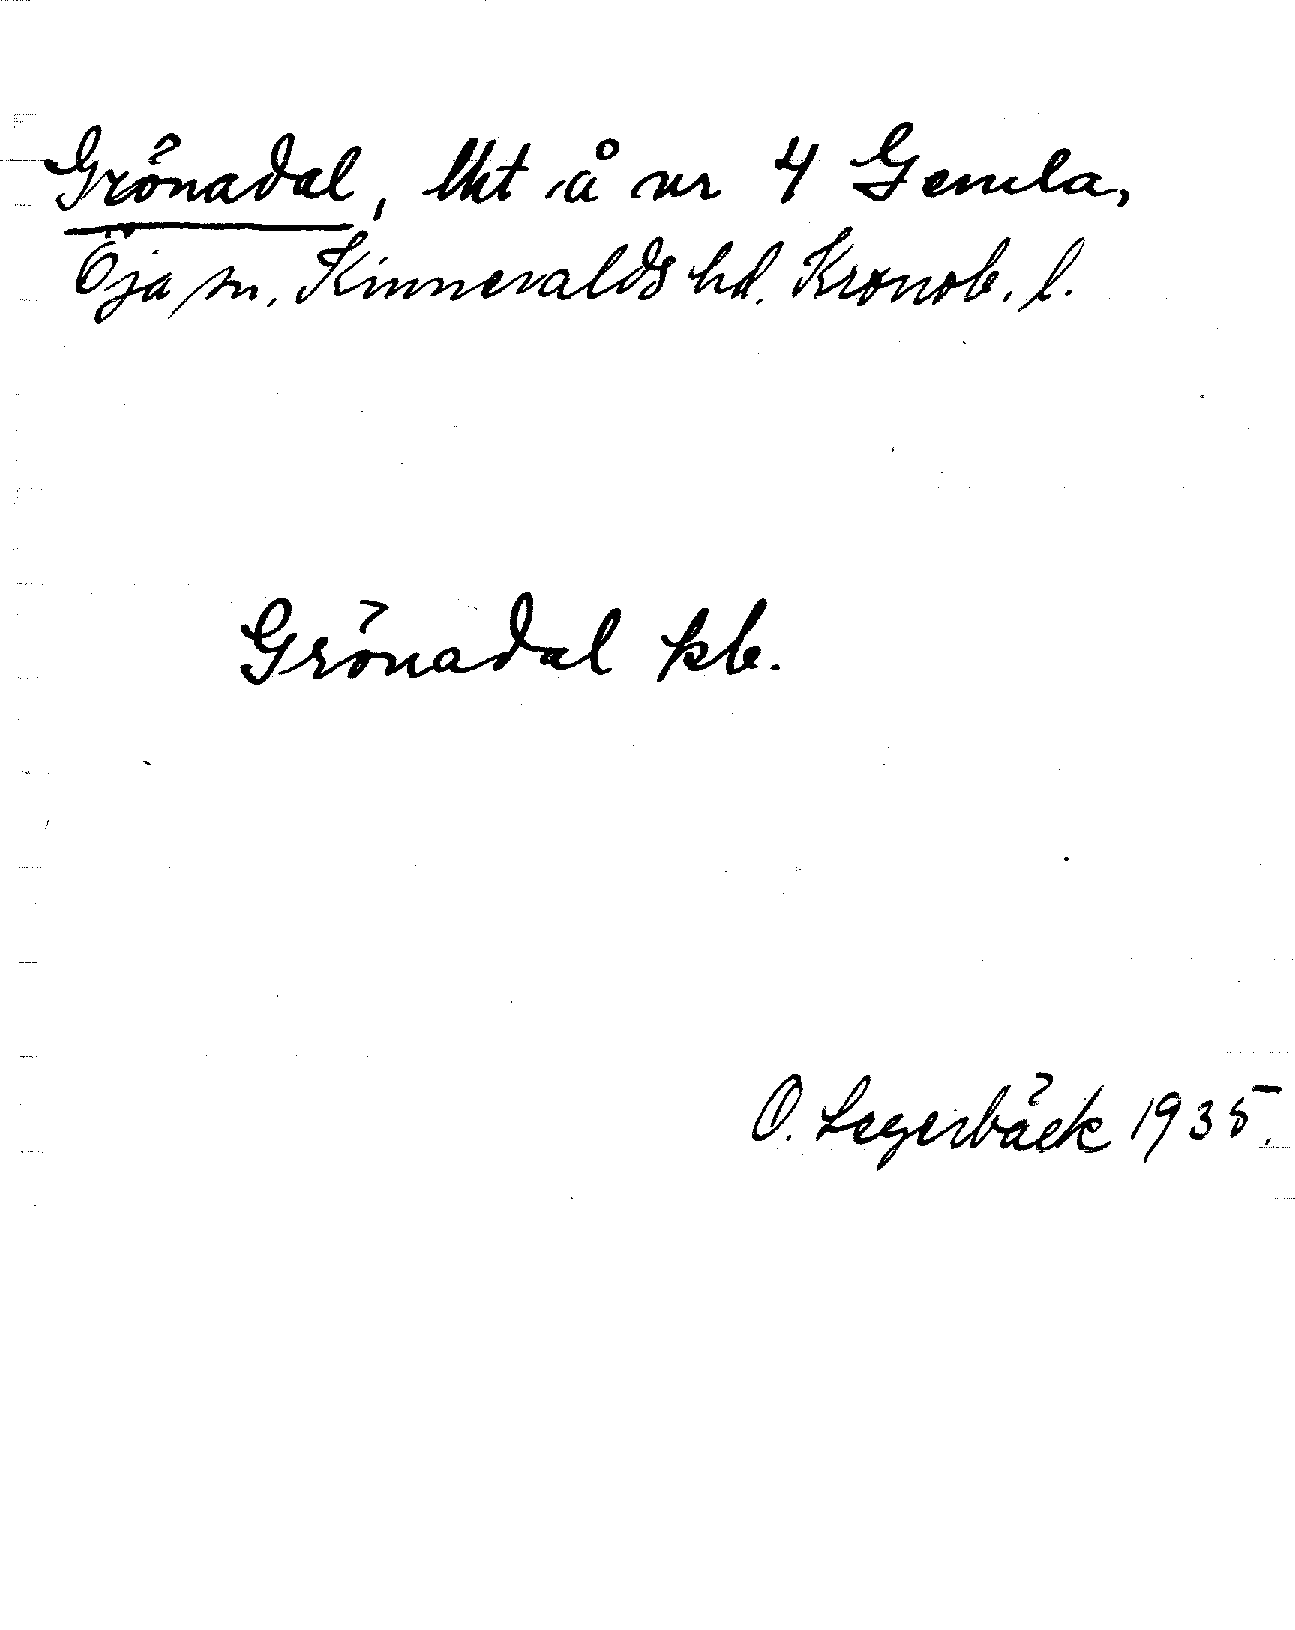 Grönadal, lht å nr 4 Gemla,
Öja sn. Kinnevalds hd. Kronob. l.
Grönadal kb.
O. Lagerbäck 1935.